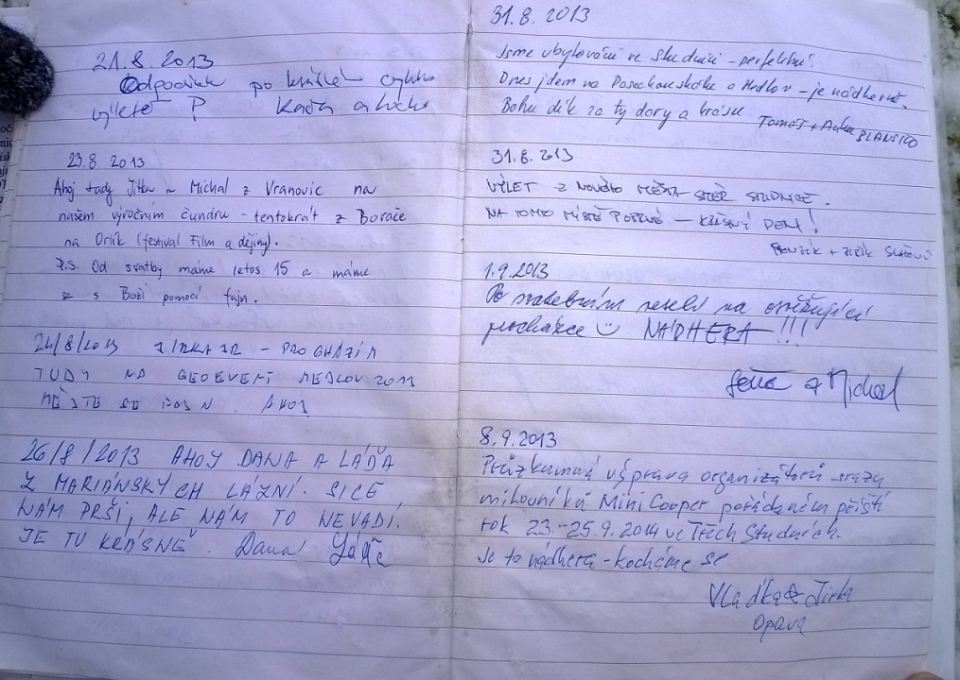 21.8.2013
Odpočinek po krátkém cyklo
výletě
23.8.2013
Ahoj tady Jitka a Michal z Vranovic na
našem výročním čundru - tentokrát z Borače
na Orlík (festival Film a dějiny).
P.S. Od svatby máme letos 15 a máme
se s Boží pomocí fajn.
24/8/2013 - PROCHÁZÍM
TUDY NA GEOEVENT MEDLOV 2013
MĚJTE SE AHOJ
26/8/2013 AHOY DANA A LÁĎA
Z MARIÁNSKÝCH LÁZNÍ. SICE
NÁM PRŠÍ, ALE NÁM TO NEVADÍ.
JE TU KRÁSNĚ. Dana Láďa
31.8.2013
Jsme ubytováni ve Studnici - perfektní.
Dnes jdem na a - je nádherně.
Bohu dík za ty dary a krásu Tomáš + BLANSKO
31.8.2013
VÝLET Z NOVÉHO MĚSTA SMĚR STUDNICE.
NA TOMTO MÍSTĚ POPRVÉ - KRÁSNÝ DEN!
1.9.2013
Po svatebním veselí na osvěžující
procházce ☺ NÁDHERA!!!
a Michal
8.9.2013
Průzkumná výprava organizátorů srazu
milovníků Mini Cooper pořádaném příští
rok 23.-25.9.2014 ve Třech Studních.
Je to nádhera - kocháme se
Vlaďka & Jirka
Opava